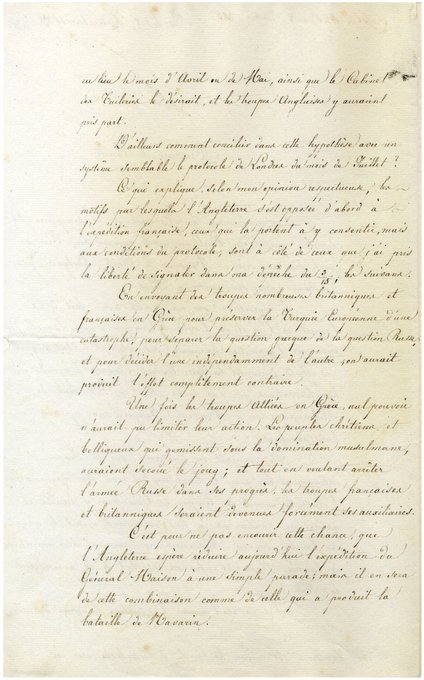 eu lieu le mois d'Avril ou de Mai, ainsi que le Cabinet
des Tuileries le désirait, et les troupes Anglaises y auraient
pris part.
D'ailleurs comment concilier dans cette hypothèse avec un
système semblable le protocole de Londres du mois de Juillet?
Ce qui explique, selon mon opinion respectueuse, les
motifs par lesquels l'Angleterre s'est opposée d'abord à
l'expédition française, ceux que la portent à y consentir, mais
aux conditions du protocole, sont à côté de ceux que j'ai pris
la liberté de signaler dans ma dépêche du 3/15, les suivans.
En envoyant des troupes nombreuses britanniques et
françaises en Grèce pour préserver la Turquie Européenne d'une
catastrophe, pour séparer la question grecque de la question Russe,
et pour décider l'une indépendamment de l'autre, on aurait
produit l'effet complètement contraire.
Une fois les troupes Alliées en Grèce, nul pouvoir
n'aurait pu limiter leur action. Les peuples chrétiens et
belliqueux qui gémissent sous la domination musulmane,
auraient secoué le joug; et tout en voulant arrêter
l'armée Russe dans ses progrès, les troupes françaises
et britanniques seraient devenues forcément ses auxiliaires.
C'est pour ne pas encourir cette chance, que
l'Angleterre espère réduire aujourd'hui l'expédition du
Général Maison à une simple parade; mais il en sera
de cette combinaison comme de celle qui a produit la
bataille de Navarin.